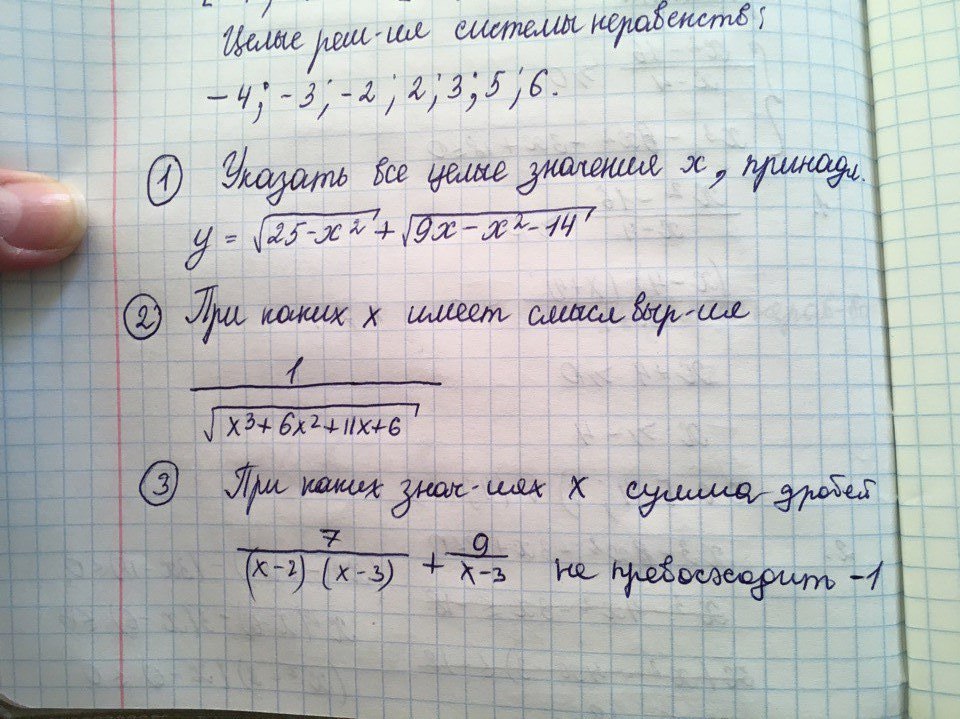 Целые реш-ия системы неравенств:
-4; -3; -2; 2; 3; 5; 6.
① Указать все целые значения x, принадл.
y = √(25-x²) + √(9x-x²-14)
② При каких x имеет смысл выр-ия
1
√(x³+6x²+11x+6)
③ При каких знач-иях x сумма дробей
7/((x-2)(x-3)) + 9/(x-3) не превосходить -1